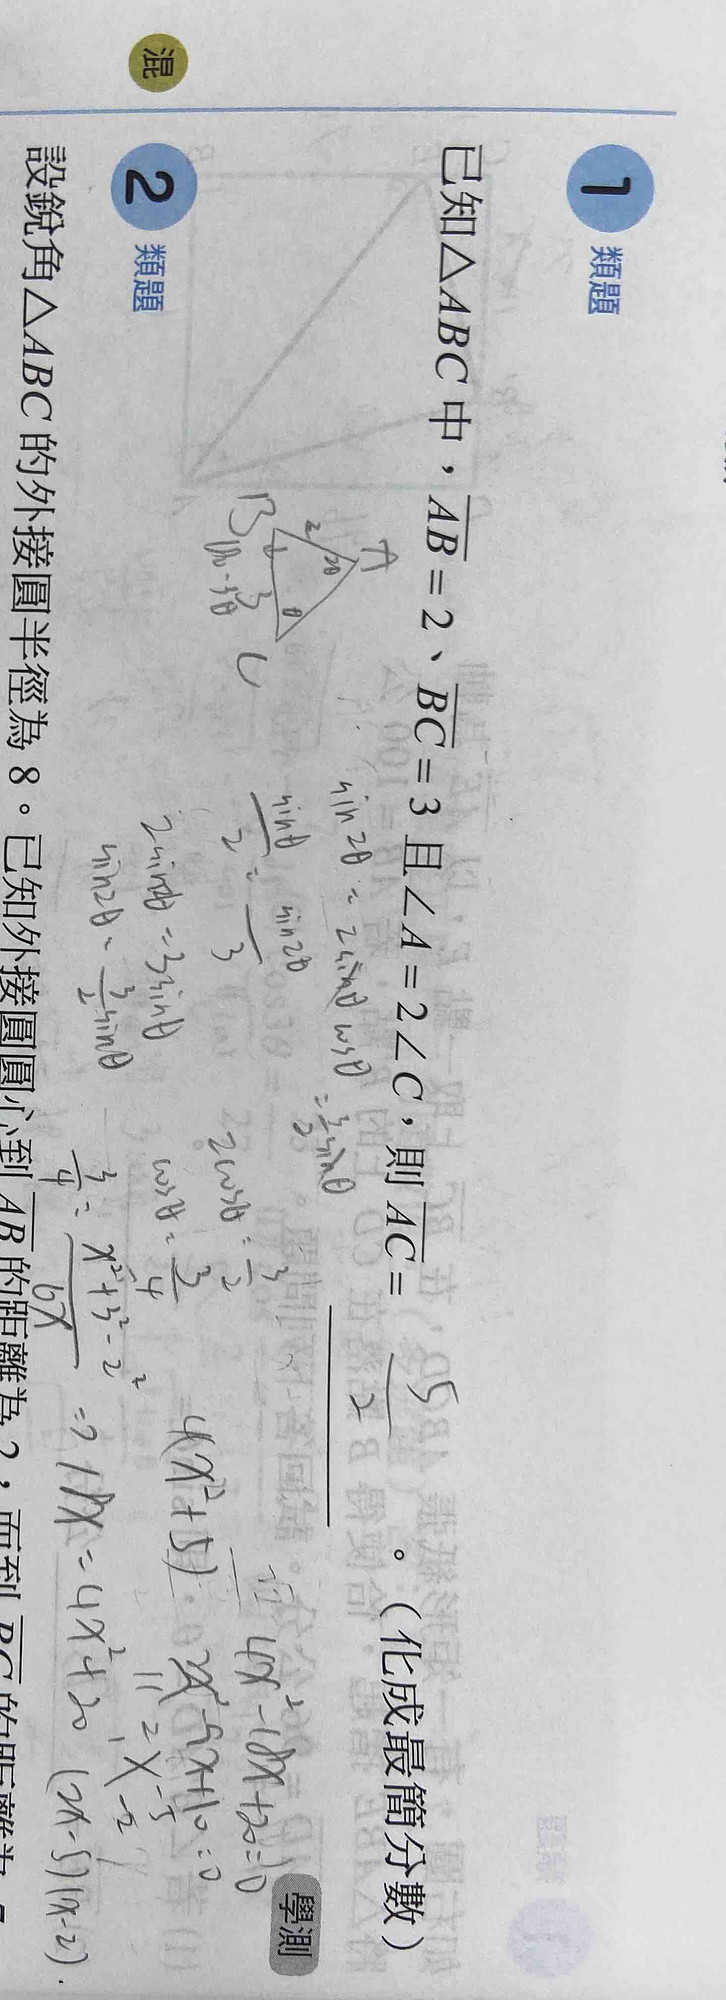 1 類題
已知△ABC中，AB=2、BC=3且∠A=2∠C，則AC= 5/2 。(化成最簡分數)
學測
A
2
2θ
B
θ
3
C
180-3θ
sin2θ=2sinθcosθ=3/2sinθ
sinθ/2=sin2θ/3
2sin2θ=3sinθ
sin2θ=3/2sinθ
2cosθ=3/2
cosθ=3/4
3/4=x²+3²-2²/6x
=>18x=4x²+20
=4(x²+5)
4x²-18x+20=0
2x²-9x+10=0
2 -5
1 -2
(2x-5)(x-2)
混
2 類題
設銳角△ABC的外接圓半徑為8。已知外接圓圓心到AB的距離為2，而到BC的距離為